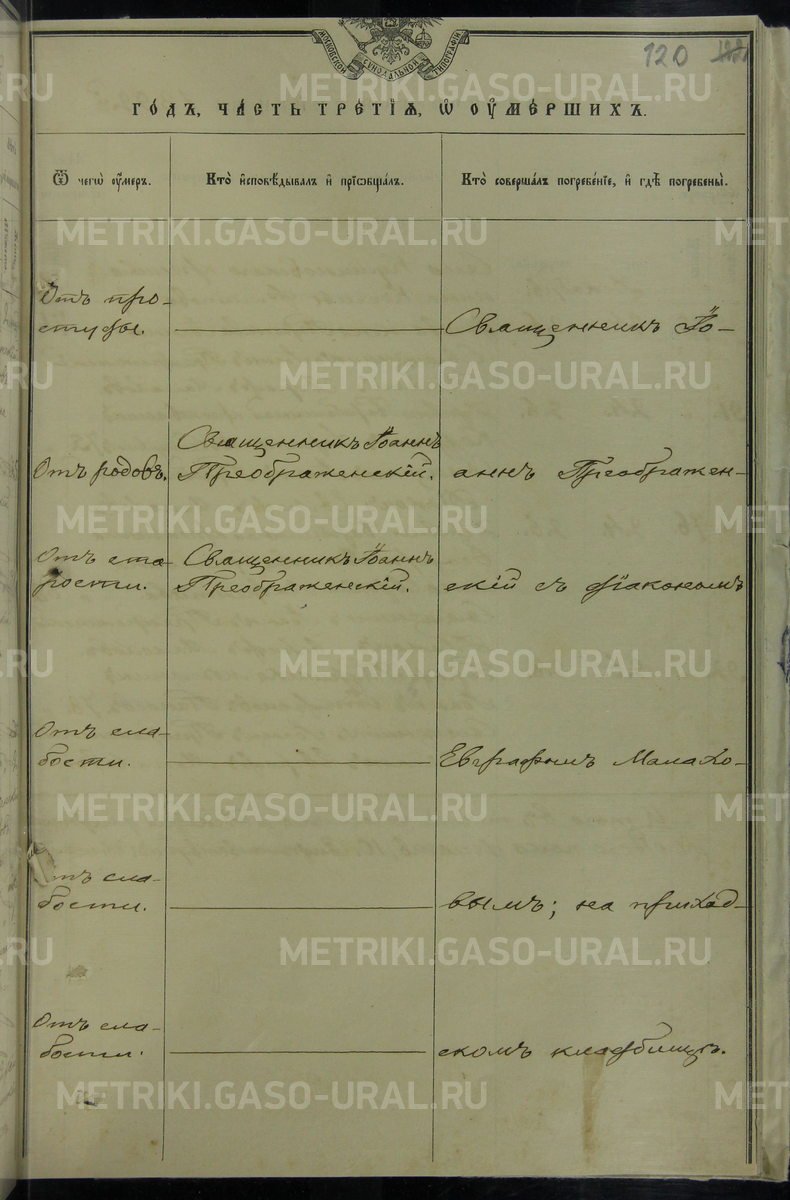 МОСКОВСКОЙ СУНОДАЛЬНОЙ ТИПОГРАФІИ
120
ГО́ДЪ, ЧА́СТЬ ТРЕ́ТІѦ, Ѡ҆ ОУ҆МЕ́РШИХЪ.
Ѿ чегѡ̀ оу҆́меръ.
Кто̀ и҆сповѣ́дывалъ и҆ прїѡбща́лъ.
Кто̀ соверша́лъ погребе́нїе, и҆ гдѣ̀ погребены̀.
Отъ про-
студы.
Священникъ Іо-
Отъ родовъ.
Священникъ Іоаннъ
Преображенскій.
аннъ Преображен-
Отъ ста-
рости.
Священникъ Іоаннъ
Преображенскій.
скій съ діакономъ
Отъ сла-
бости.
Евграфомъ Малахо-
Отъ сла-
бости.
вымъ; на приход-
Отъ сла-
бости.
скомъ кладбищѣ.
METRIKI.GASO-URAL.RU